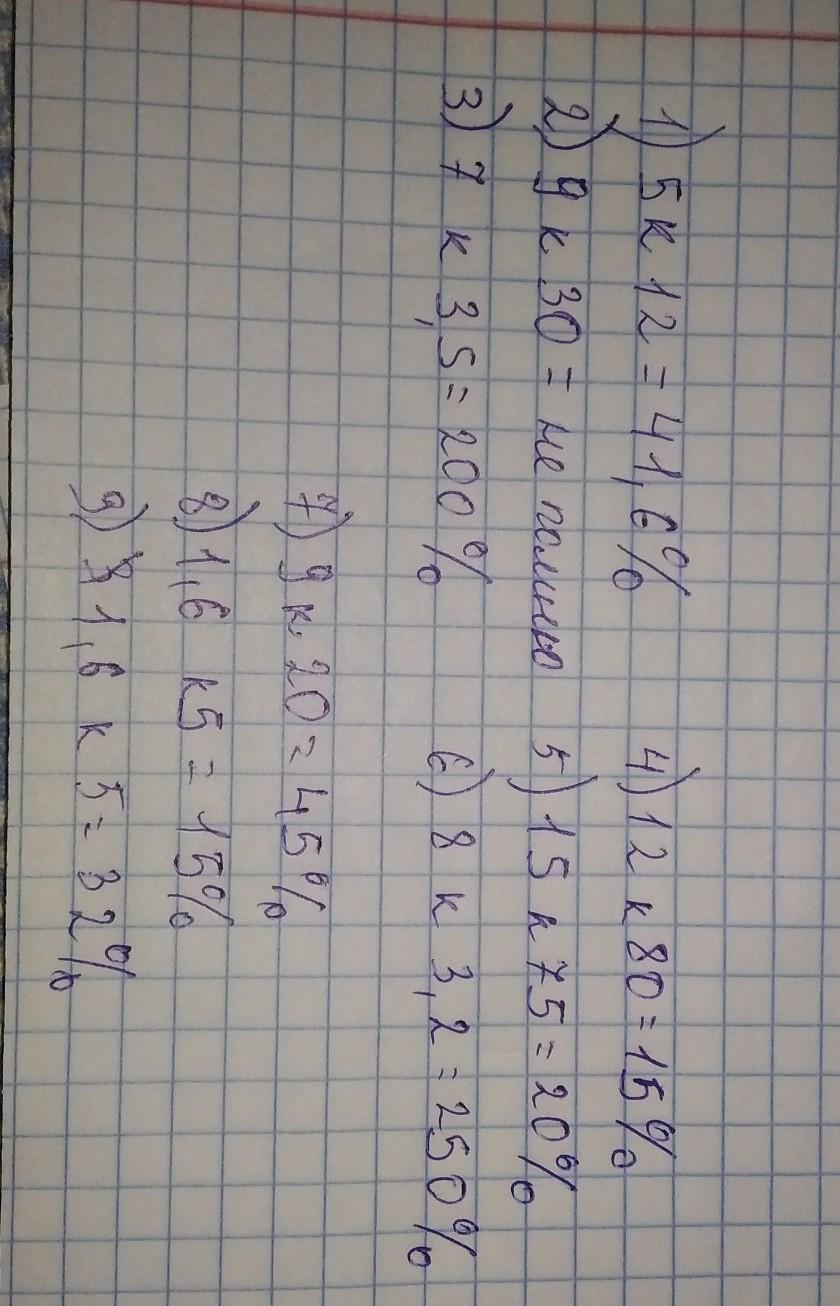 1) 5 к 12 = 41,6%
2) 9 к 30 = не помню
3) 7 к 3,5 = 200%
4) 12 к 80 = 15%
5) 15 к 75 = 20%
6) 8 к 3,2 = 250%
7) 9 к 20 = 45%
8) 1,6 к 5 = 15%
9) 1,6 к 5 = 32%